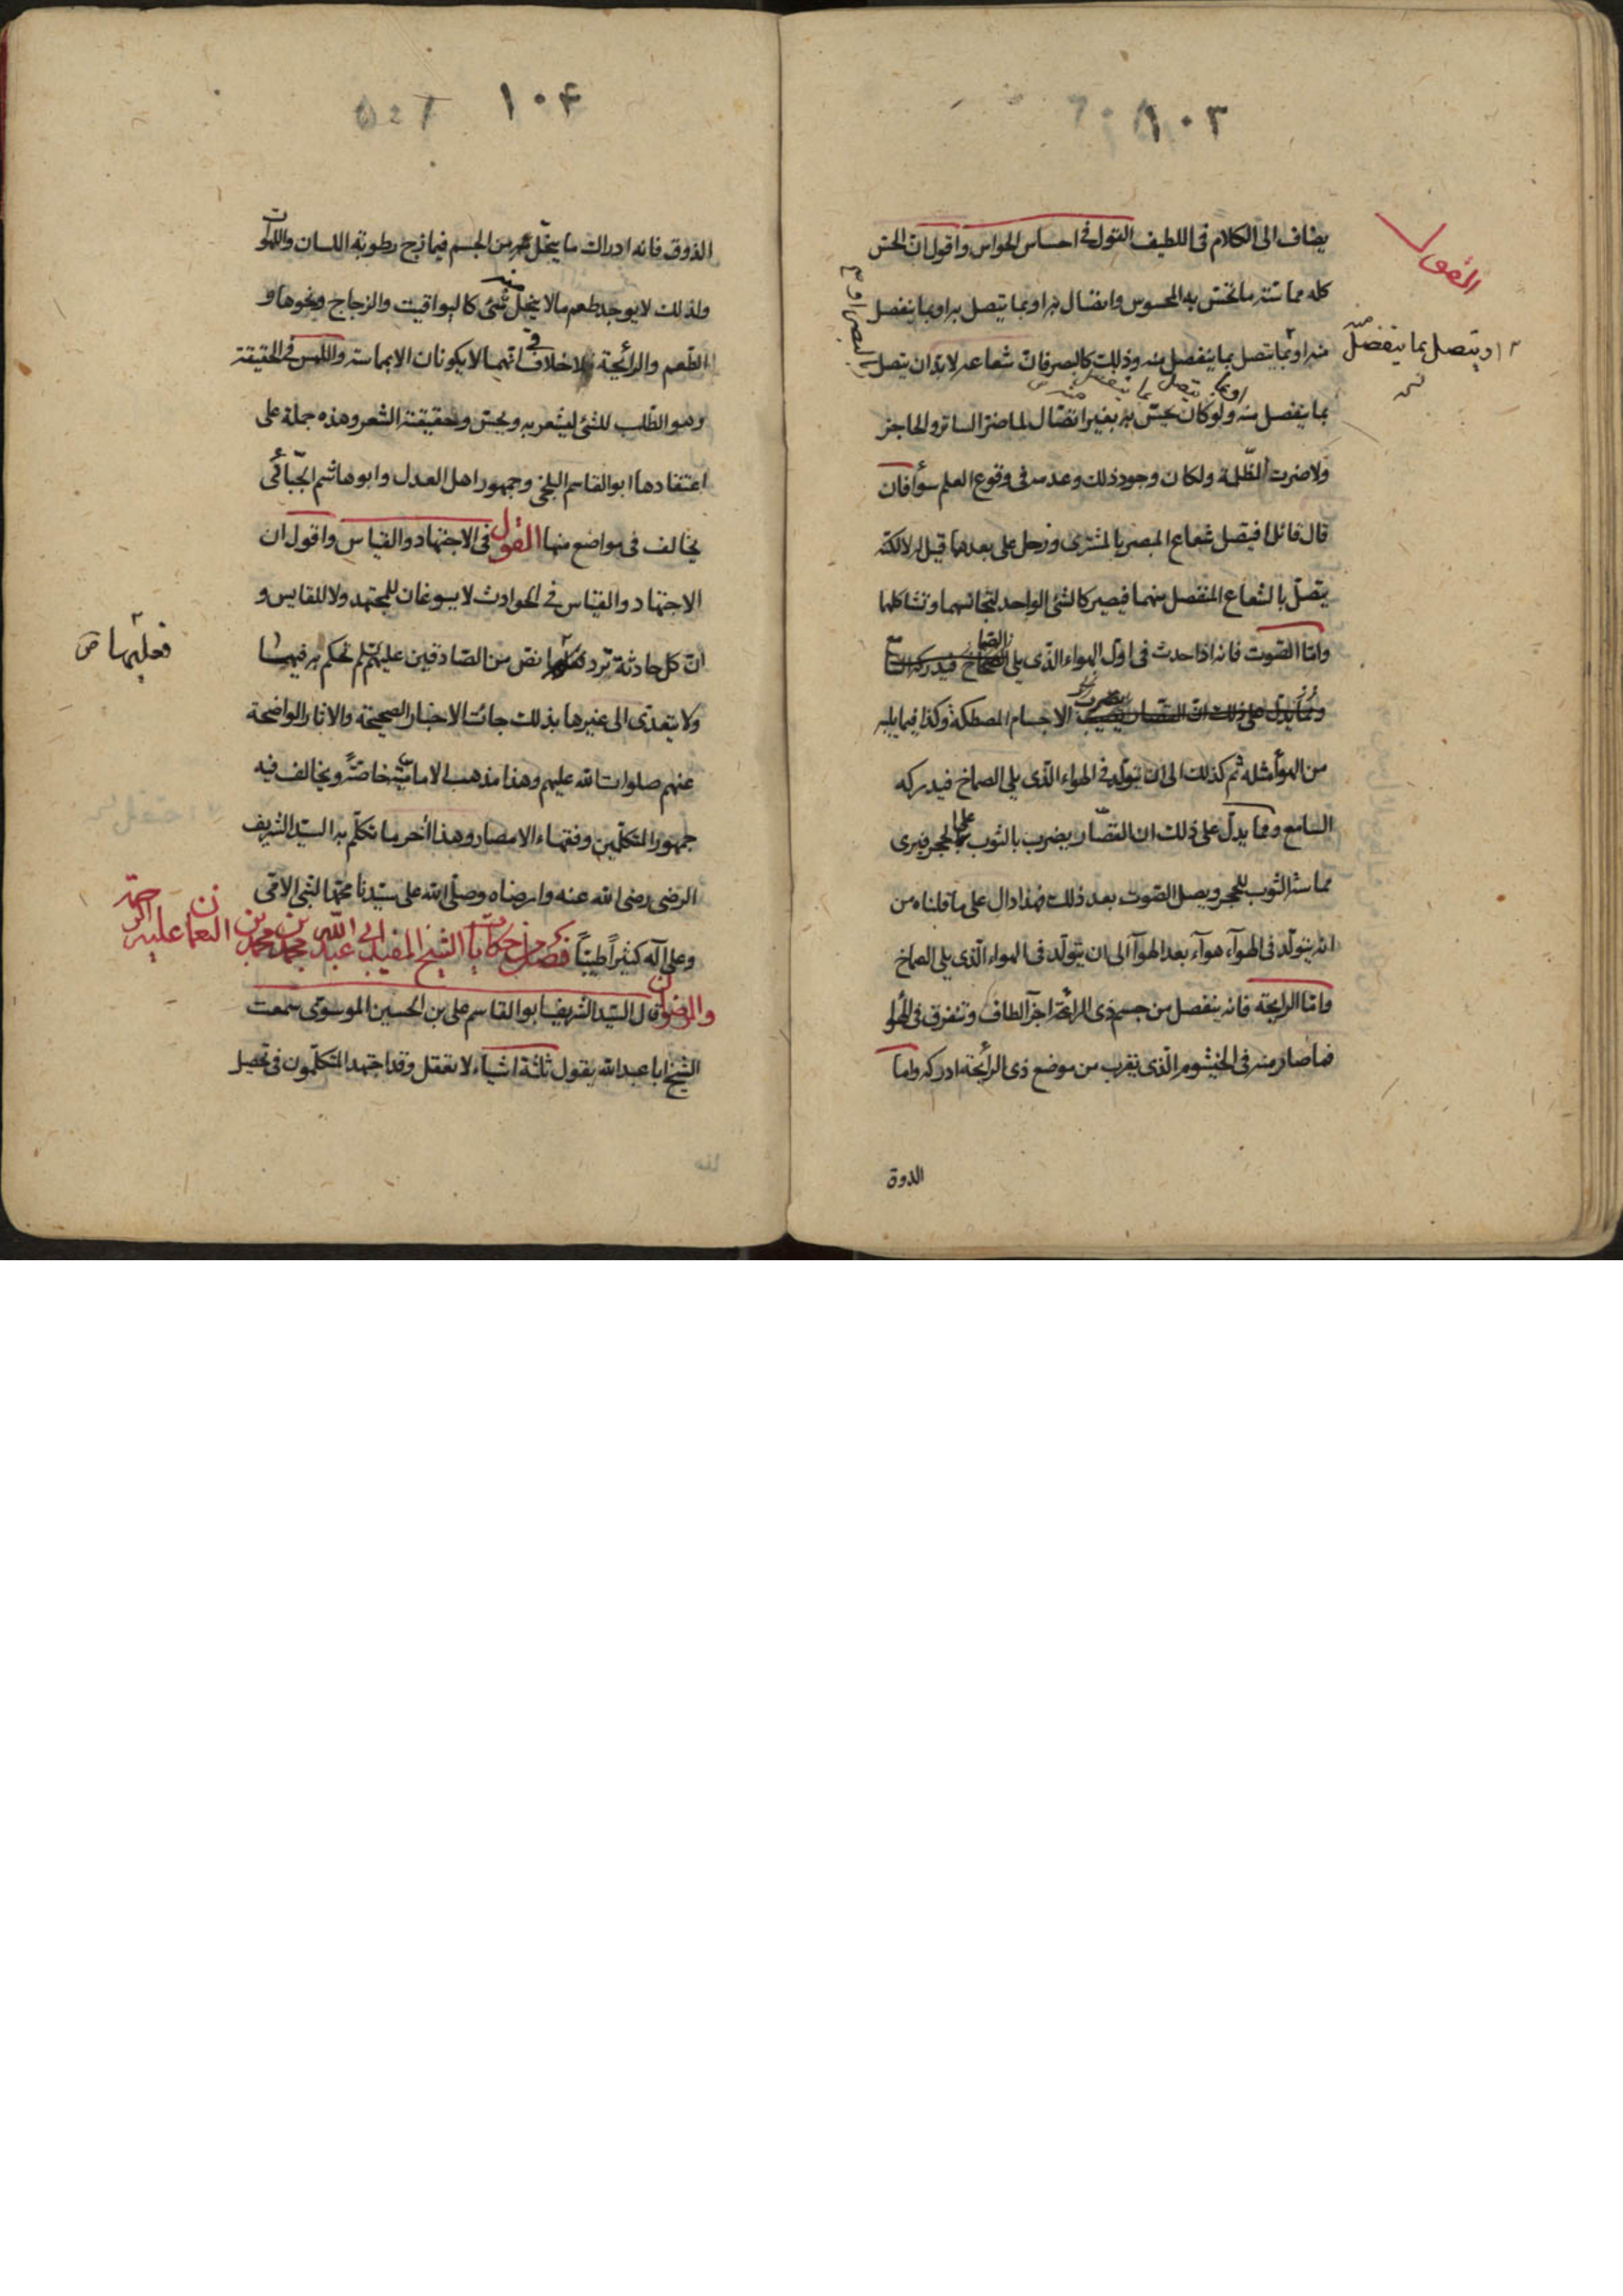 ١٠٣
يضاف الى الكلام فى اللطيف القول فى احساس الحواس واقول ان الحس
القول
كله مماسّة ما تحس به المحسوس واتصال به او بما يتصل به او بما ينفصل
منه او بما يتصل بما ينفصل منه وذلك كالبصر فان شعاعه لا بد ان يتصل
او يتصل بما ينفصل منه
بما ينفصل منه ولو كان يحس به بغير اتصال لما ضر الساتر والحاجز
او بما يتصل بما ينفصل منه
ولا ضرت الظلمة ولكان وجود ذلك وعدمه فى وقوع العلم سوأ فان
قال قائل افيتصل شعاع المبصر بالمشترى وزحل على بعدهما قيل له لا لكنّه
يتصل بالشعاع المنفصل منهما فيصير كالشئ الواحد لتجانسهما وتشاكلهما
وامّا الصوت فانه اذا حدث فى اوّل الهواء الذى يلى الصماخ فيدركه
ومما يدل على ذلك ان القصار يضرب الاجسام المصطكة وكذا فيما يليه
من الهوأ مثله ثم كذلك الى ان يتولد فى الهواء الذى يلى الصماخ فيدركه
السامع ومما يدل على ذلك ان القصّار يضرب بالثوب على الحجر فيرى
مماسة الثوب للحجر ويصل الصوت بعد ذلك فهذا دال على ما قلناه من
انه يتولد فى الهوآء هوآء بعد الهوآ الى ان يتولد فى الهواء الذى يلى الصماخ
وامّا الرايحة فانه ينفصل من جسم ذى الرائحة اجزآ لطاف وتتفرق فى الهوا
فما صار منه فى الخيشوم الذى يقرب من موضع ذى الرائحة ادركه واما
الذوق
١٠٤
الذوق فانه ادراك ما يتحلل من الجسم فيمازج رطوبة اللسان واللهوات
ولذلك لا يوجد طعم ما لا ينحل منه شئ كاليواقيت والزجاج ونحوها و
الطعم والرائحة لا خلاف فى انهما لا يكونان الا بمماسة واللمس فى الحقيقة
وهو الطلب للشئ ليشعر به ويحس وحقيقته الشعر وهذه جملة على
اعتقادها ابو القاسم البلخى وجمهور اهل العدل وابو هاشم الجبّائى
يخالف فى مواضع منها القول فى الاجتهاد والقياس واقول ان
الاجتهاد والقياس فى الحوادث لا يسوغان للمجتهد ولا للمقايس و
ان كل حادثة ترد فعليها نص من الصادقين عليهم السلم يحكم به فيها
فعليها ص
ولا يتعدى الى غيرها بذلك جائت الاخبار الصحيحة والاثار الواضحة
عنهم صلوات الله عليهم وهذا مذهب الاماميّة خاصّة ويخالف فيه
جمهور المتكلمين وفقهاء الامصار وهذا أخر ما تكلم به السيّد الشريف
الرضى رضى الله عنه وارضاه وصلى الله على سيّدنا محمّد النبى الامّى
وعلى آله كثيراً طيّباً فصل من حكايات الشيخ المفيد ابى عبد الله محمد بن محمد بن النعمان عليه الرحمة
والرضوان قال السيّد الشريف ابو القاسم على بن الحسين الموسوى سمعت
الشيخ ابا عبد الله يقول ثلثة اشياء لا تعقل وقد اجتهد المتكلمون فى تحصيل